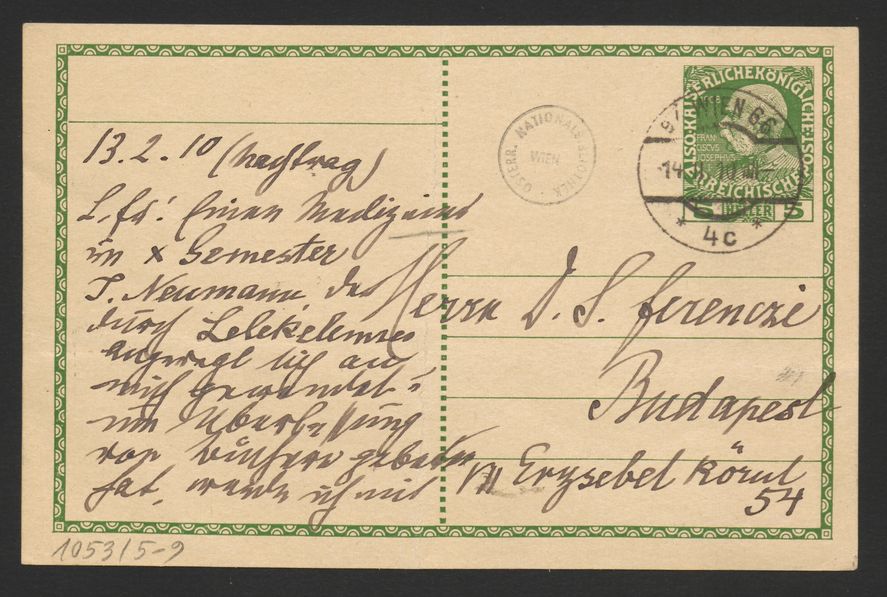 13.2.10 (Nachtrag)
L. Fr! Einen Mediziner
im X Semester
S. Neumann, der
durch Lelekelemzes
angeregt sich an
mich gewendet u
um Überlassung
von Büchern gebeten
hat, werde ich mit
ÖSTERR. NATIONALBIBLIOTHEK
WIEN
KAISERLICHE KÖNIGLICHE ÖSTERREICHISCHE
FRAN
CISCVS
JOSEPHVS
5 HELLER 5
WIEN 66
4c
Herrn D. S. Ferenczi
Budapest
VII Erzsebet körut
54
1053/5-9